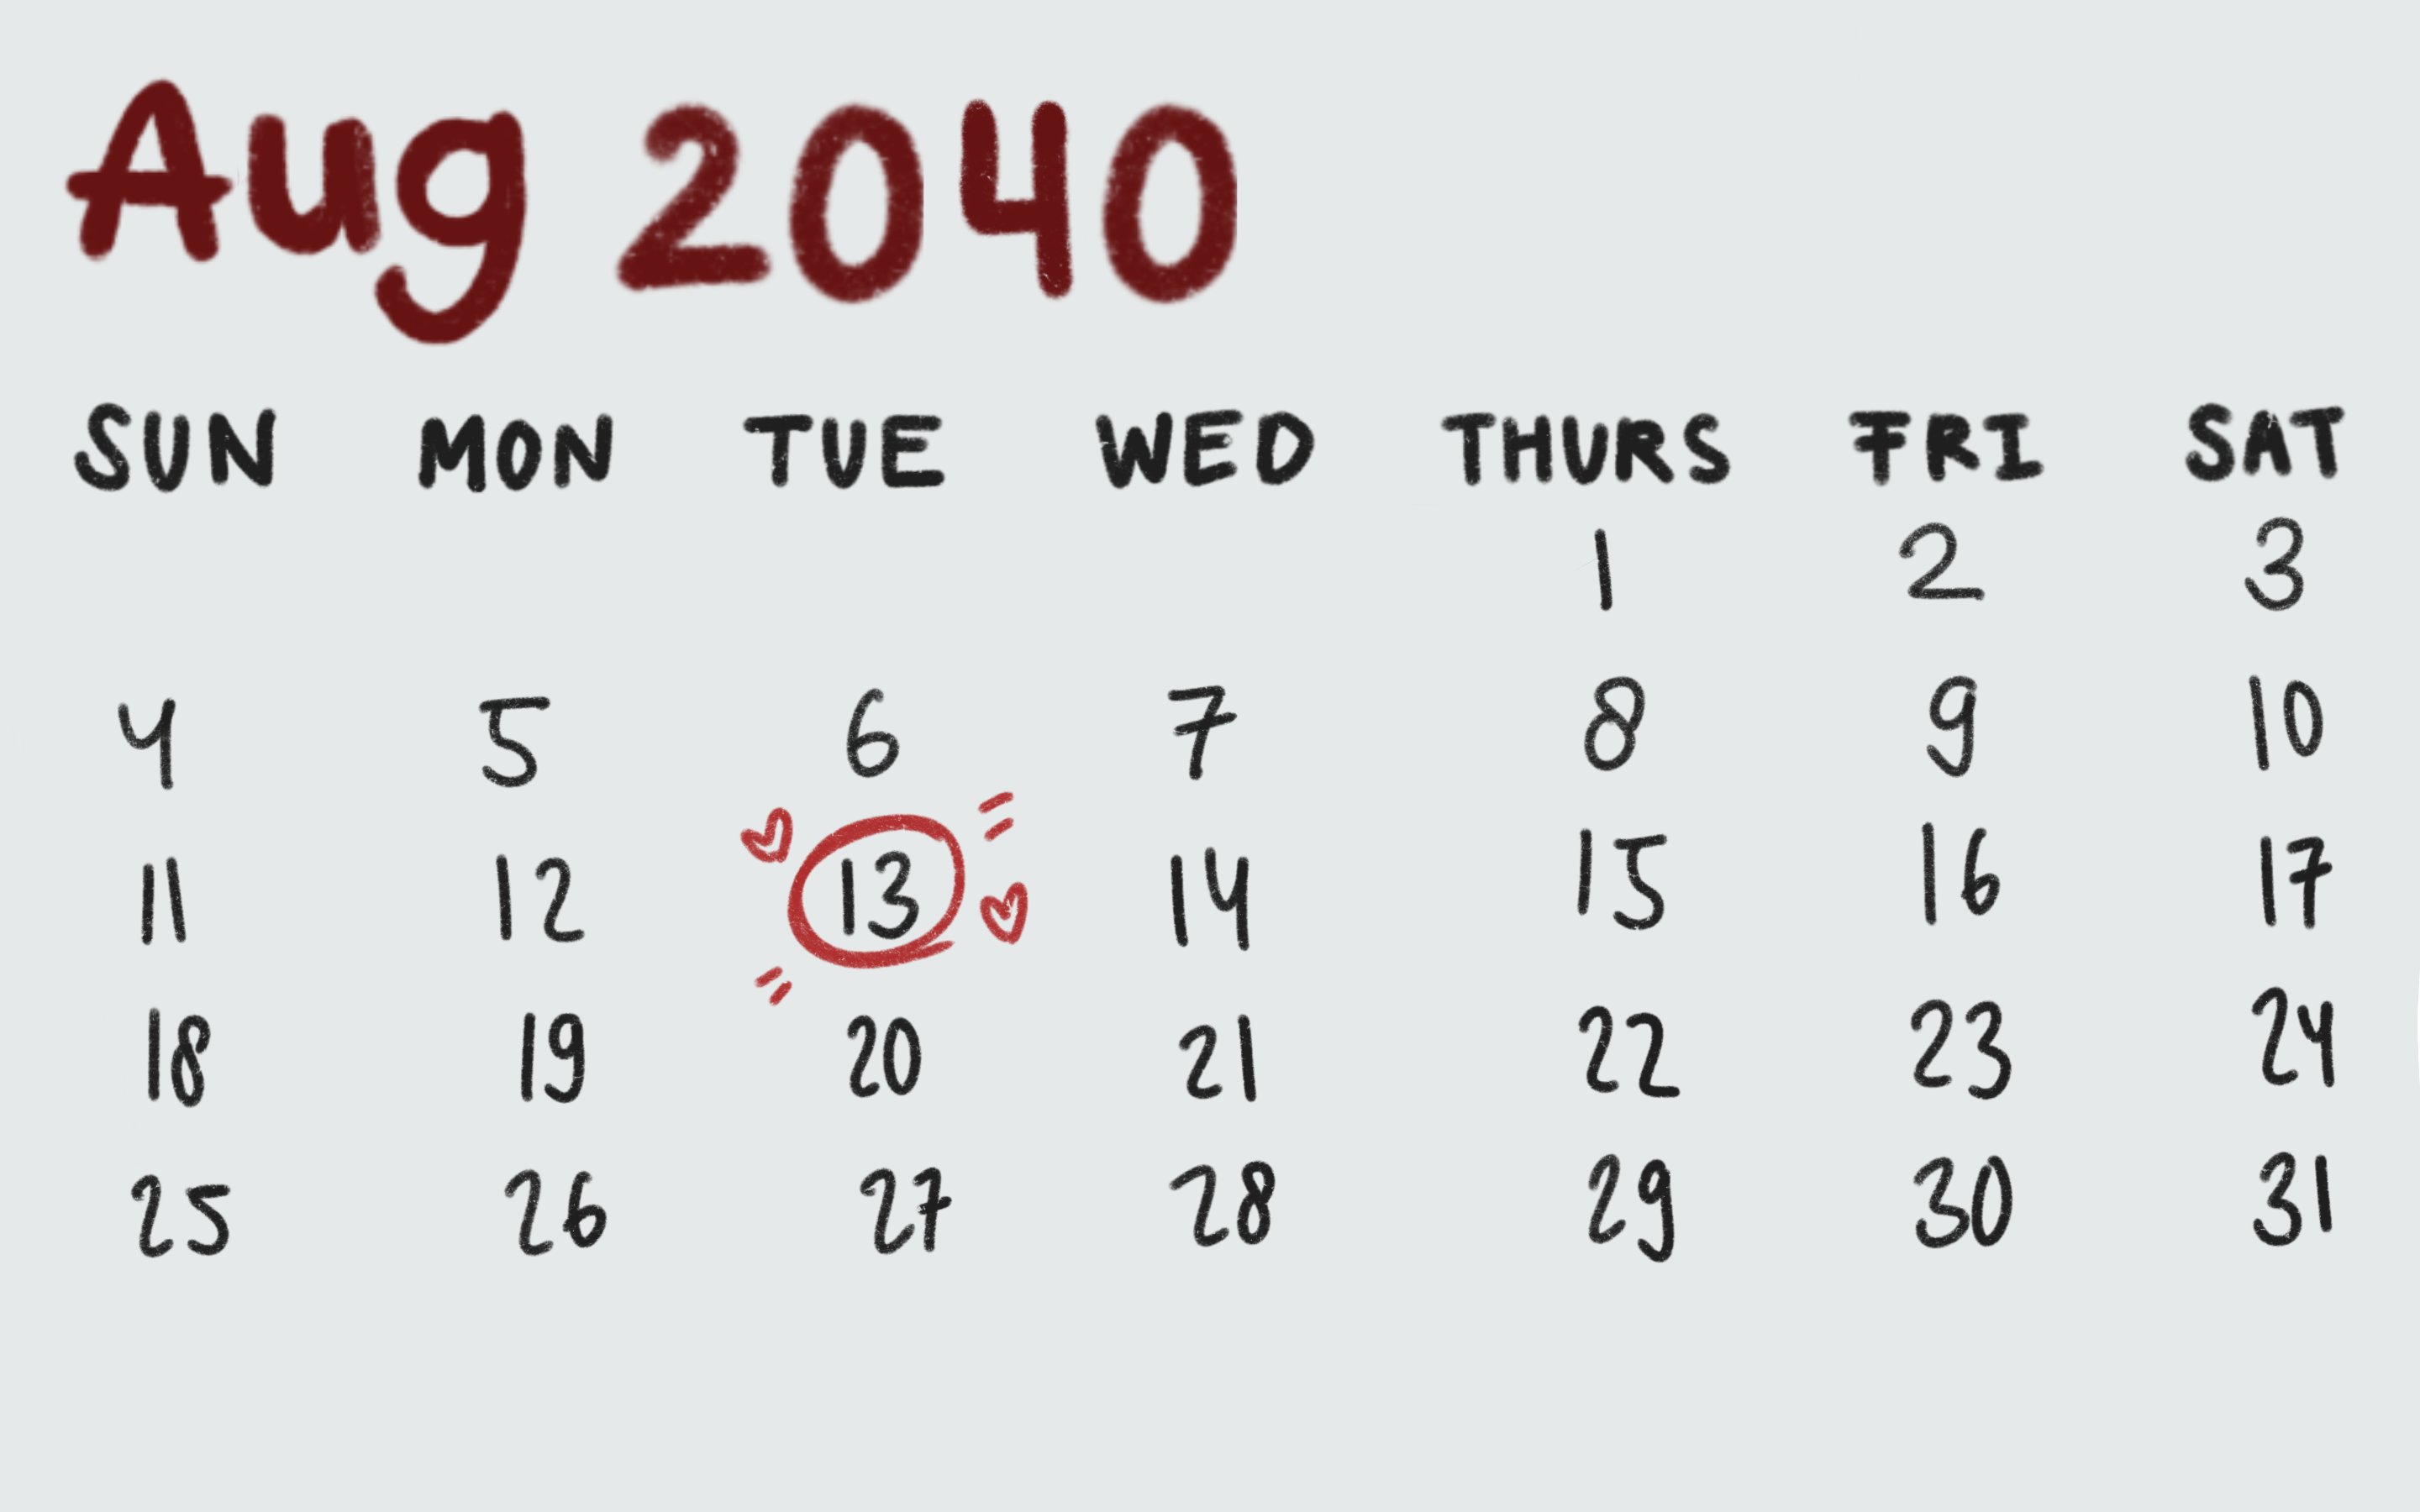 Aug 2040
SUN MON TUE WED THURS FRI SAT
1 2 3
4 5 6 7 8 9 10
11 12 13 14 15 16 17
18 19 20 21 22 23 24
25 26 27 28 29 30 31